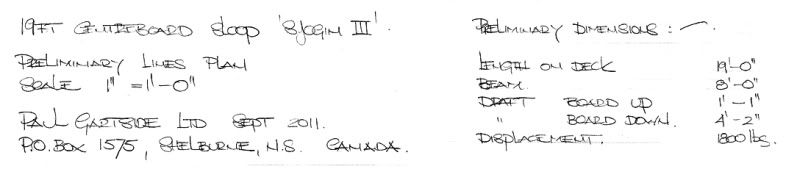 19FT CENTERBOARD SLOOP 'SJOGIN III'.
PRELIMINARY LINES PLAN
SCALE 1" = 1'-0"
PAUL GARTSIDE LTD SEPT 2011.
P.O. BOX 1575, SHELBURNE, N.S. CANADA.
PRELIMINARY DIMENSIONS :-
LENGTH ON DECK 19'-0"
BEAM 8'-0"
DRAFT BOARD UP 1'-1"
" BOARD DOWN. 4'-2"
DISPLACEMENT. 1800 lbs.